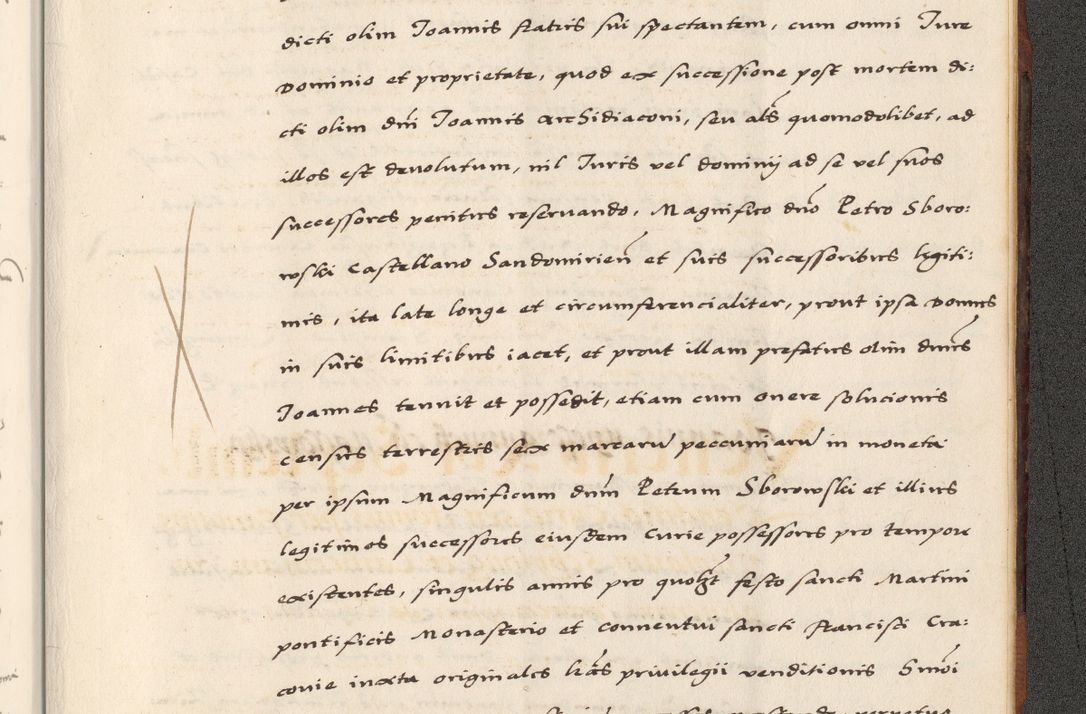 dicti olim Joannis fratris sui spectantem, cum omni Jure
Dominio et proprietate, quod ex successione post mortem di:
cti olim dni Joannis Archidiaconi, seu als quomodolibet, ad
illos est devolutum, nil Juris vel dominij ad se vel suos
successores penitus reservando, Magnifico dno Petro Sboro:
wski Castellano Sandomirien et suis successoribus legiti:
mis, ita late longe et circumferencialiter, prout ipsa Domus
in suis limitibus iacet, et prout illam prefatus olim dnus
Joannes tenuit et possedit, etiam cum onere solucionis
census terrestris sex marcaru pecuniaru in moneta
per ipsum Magnificum dnm Petrum Sborowski et illius
legitimos successores eiusdem Curie possessores pro tempore
existentes, singulis annis pro quolzt festo sancti Martini
pontificis Monasterio et conventui sancti Francisci Cra:
covie iuxta originales lras privilegii venditionis
perpetuo